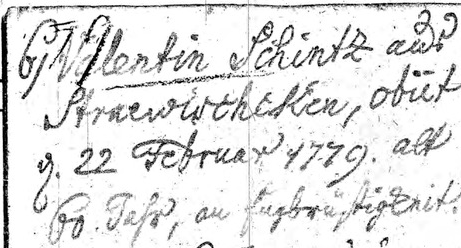 6) Valentin Schintz aus
Strucwischcken, obiit
d. 22 Februar 1779. alt
60. Jahr, an Engbrüstigkeit.